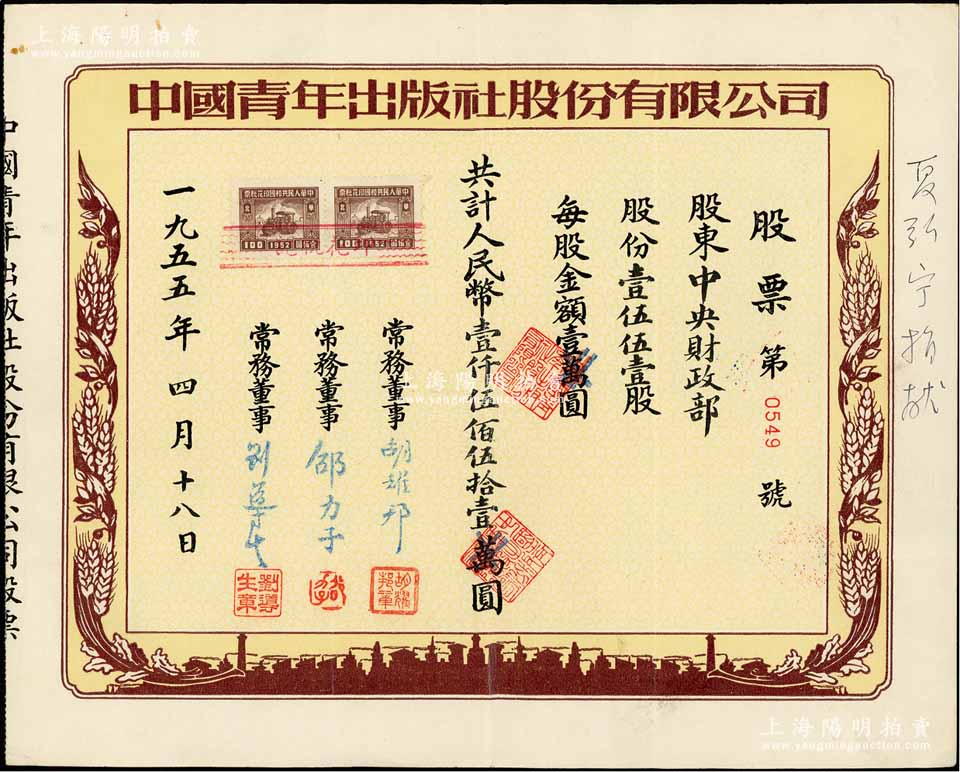 上海陽明拍賣
www.yangmingauction.com
中國青年出版社股份有限公司
夏弘宁捐献
股票第0549號
股東中央財政部
股份壹伍伍壹股
每股金額壹萬圓
共計人民幣壹仟伍佰伍拾壹萬圓
常務董事 胡耀邦
胡耀邦章
常務董事 邵力子
常務董事 劉導生
劉導生章
中華人民共和國印花稅票
100 1952
中華人民共和國印花稅票
100 1952
一九五五年四月十八日
中國青年出版社股份有限公司股票
上海陽明拍賣
www.yangmingauction.com
上海陽明拍賣
www.yangmingauction.com